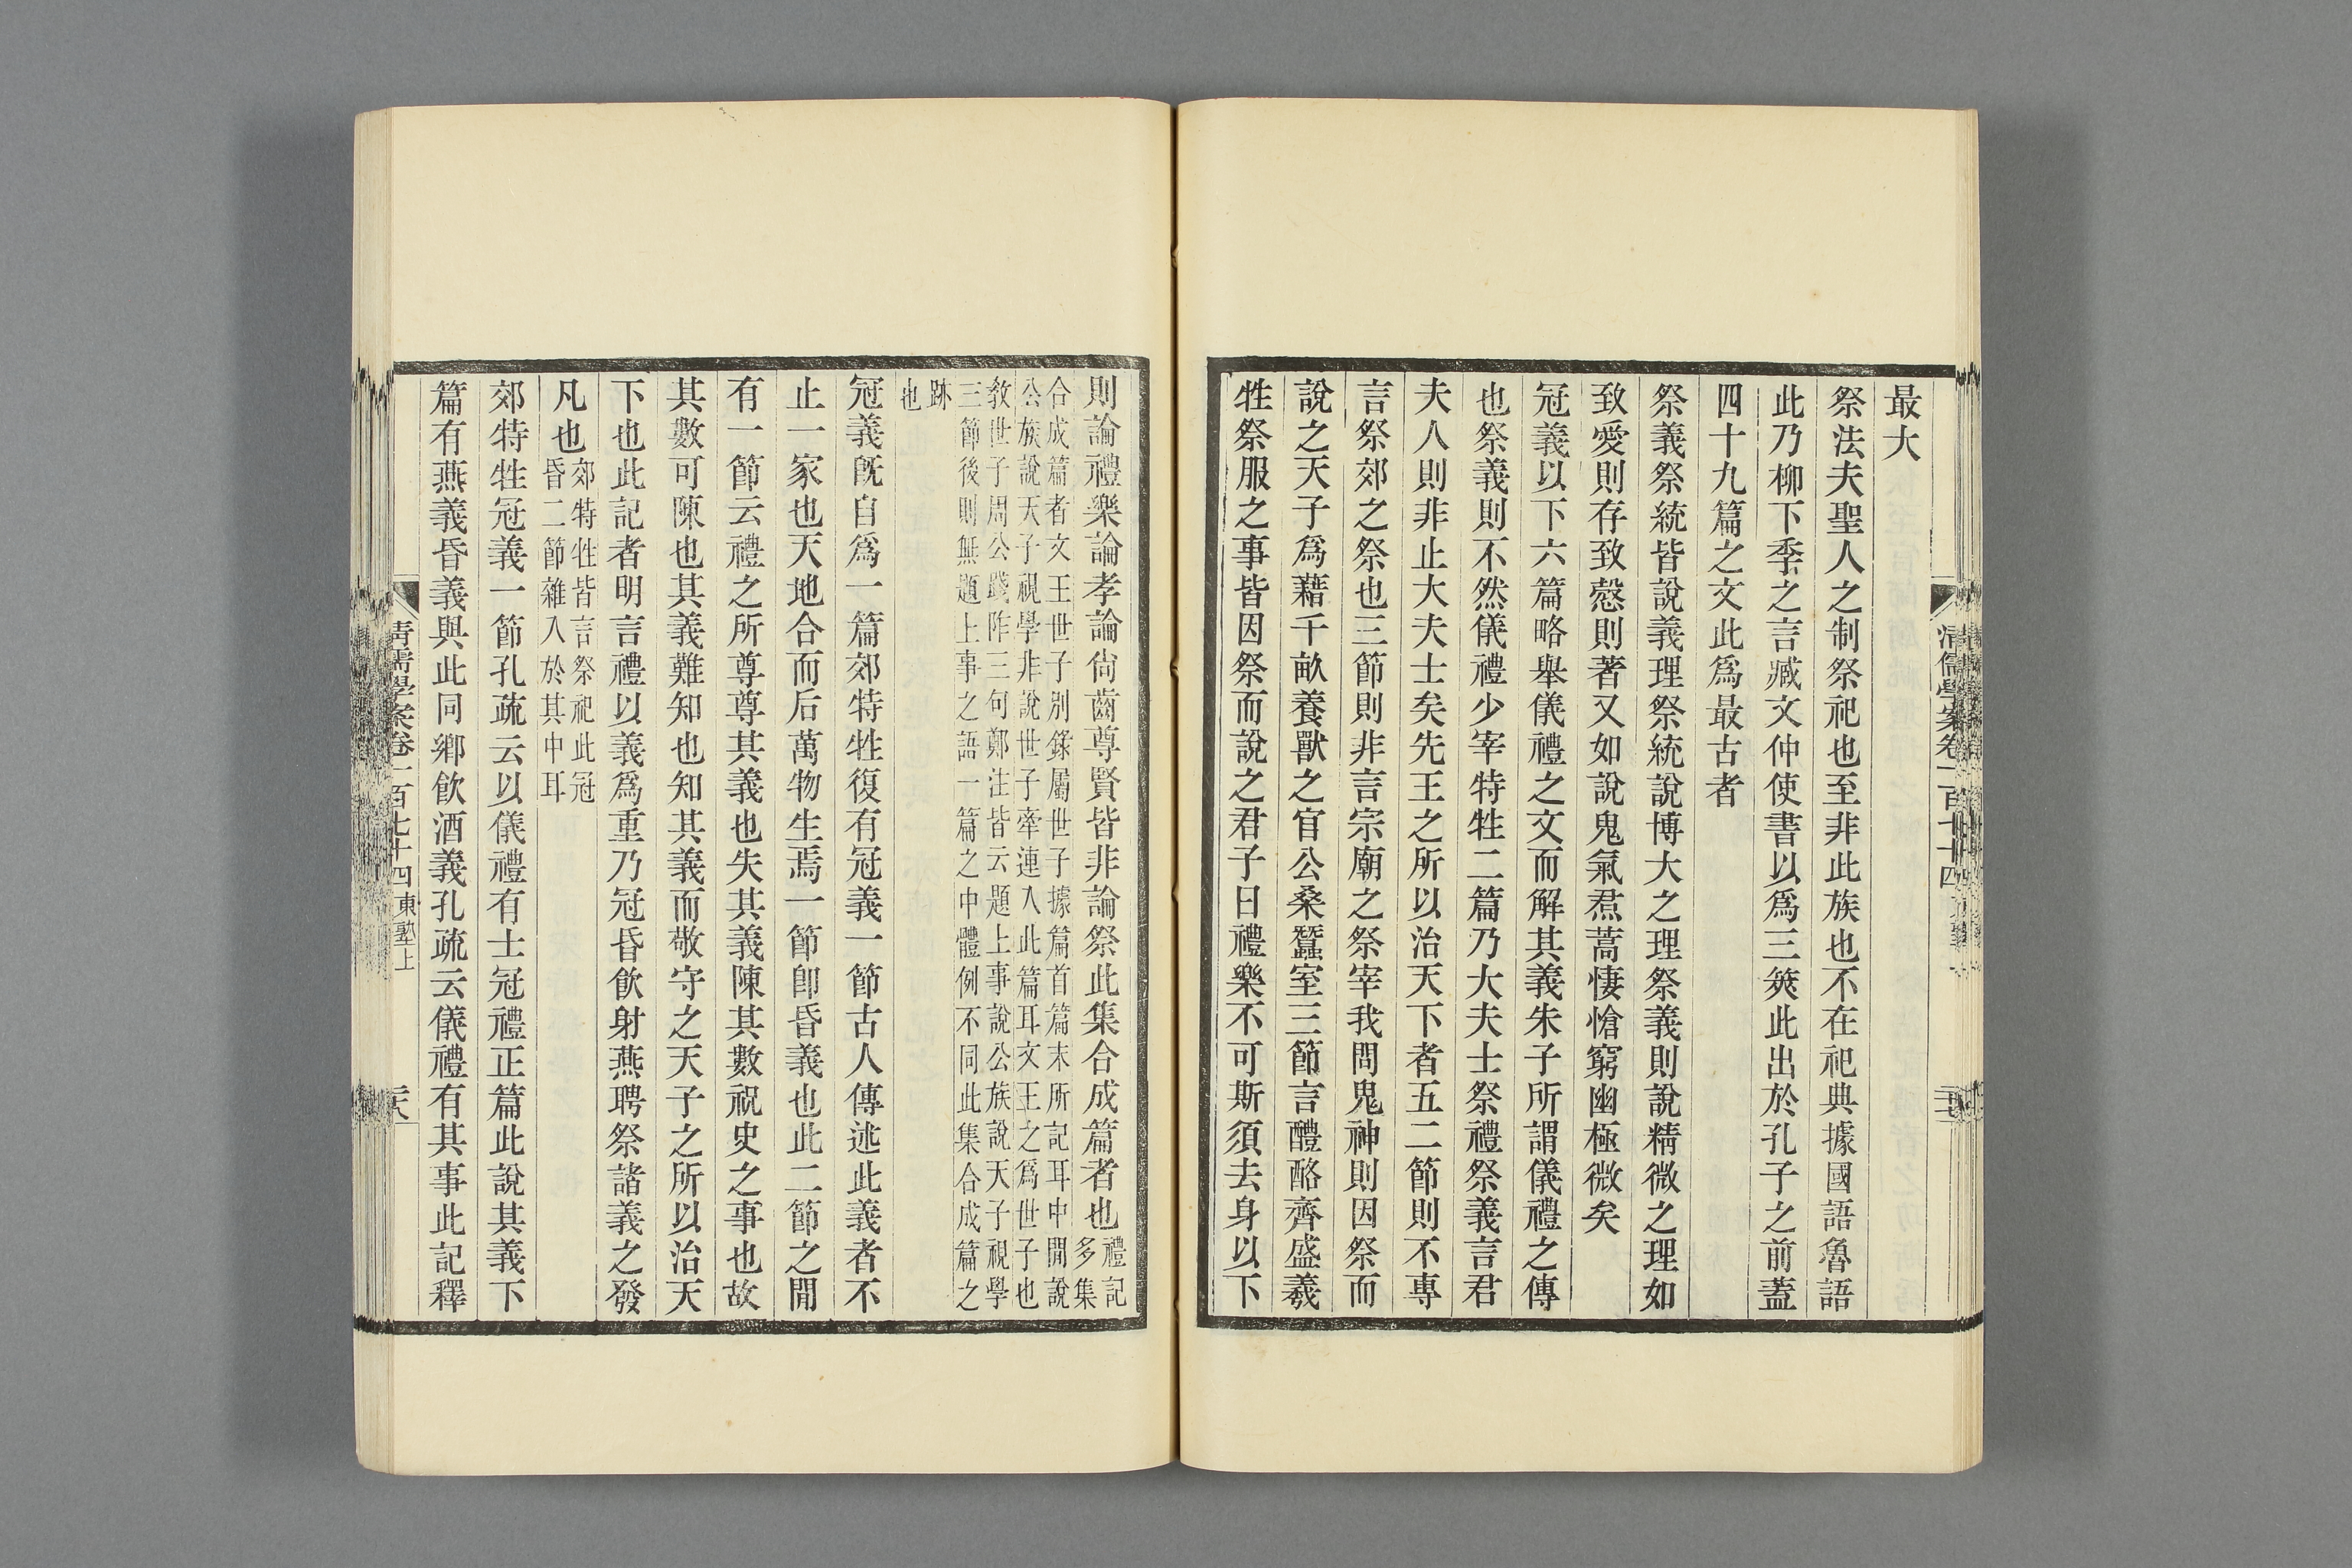 最大
祭法夫聖人之制祭祀也至非此族也不在祀典據國語魯語
此乃柳下季之言臧文仲使書以爲三筴此出於孔子之前蓋
四十九篇之文此爲最古者
祭義祭統皆說義理祭統說博大之理祭義則說精微之理如
致愛則存致愨則著又如說鬼氣焄蒿悽愴窮幽極微矣
冠義以下六篇略舉儀禮之文而解其義朱子所謂儀禮之傳
也祭義則不然儀禮少宰特牲二篇乃大夫士祭禮祭義言君
夫人則非止大夫士矣先王之所以治天下者五二節則不專
言祭郊之祭也三節則非言宗廟之祭宰我問鬼神則因祭而
說之天子爲藉千畝養獸之官公桑蠶室三節言醴酪齊盛羲
牲祭服之事皆因祭而說之君子曰禮樂不可斯須去身以下
清儒學案卷一百七十四
則論禮樂論孝論尙齒尊賢皆非論祭此集合成篇者也禮記
多集
合成篇者文王世子別錄屬世子據篇首篇末所記耳中閒說
公族說天子視學非說世子牽連入此篇耳文王之爲世子也
敎世子周公踐阼三句鄭注皆云題上事說公族說天子視學
三節後則無題上事之語一篇之中體例不同此集合成篇之
跡
也
冠義旣自爲一篇郊特牲復有冠義一節古人傳述此義者不
止一家也天地合而后萬物生焉一節卽昏義也此二節之閒
有一節云禮之所尊尊其義也失其義陳其數祝史之事也故
其數可陳也其義難知也知其義而敬守之天子之所以治天
下也此記者明言禮以義爲重乃冠昏飮射燕聘祭諸義之發
凡也郊特牲皆言祭祀此冠
昏二節雜入於其中耳
郊特牲冠義一節孔疏云以儀禮有士冠禮正篇此說其義下
篇有燕義昏義與此同鄕飮酒義孔疏云儀禮有其事此記釋
清儒學案卷一百七十四東塾上